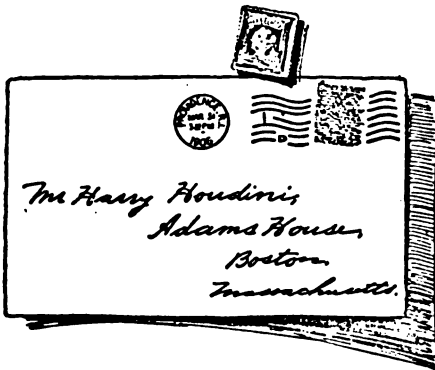 PROVIDENCE, R.I.
MAR 2
1906
Mr Harry Houdini,
Adams House,
Boston
Massachusetts.